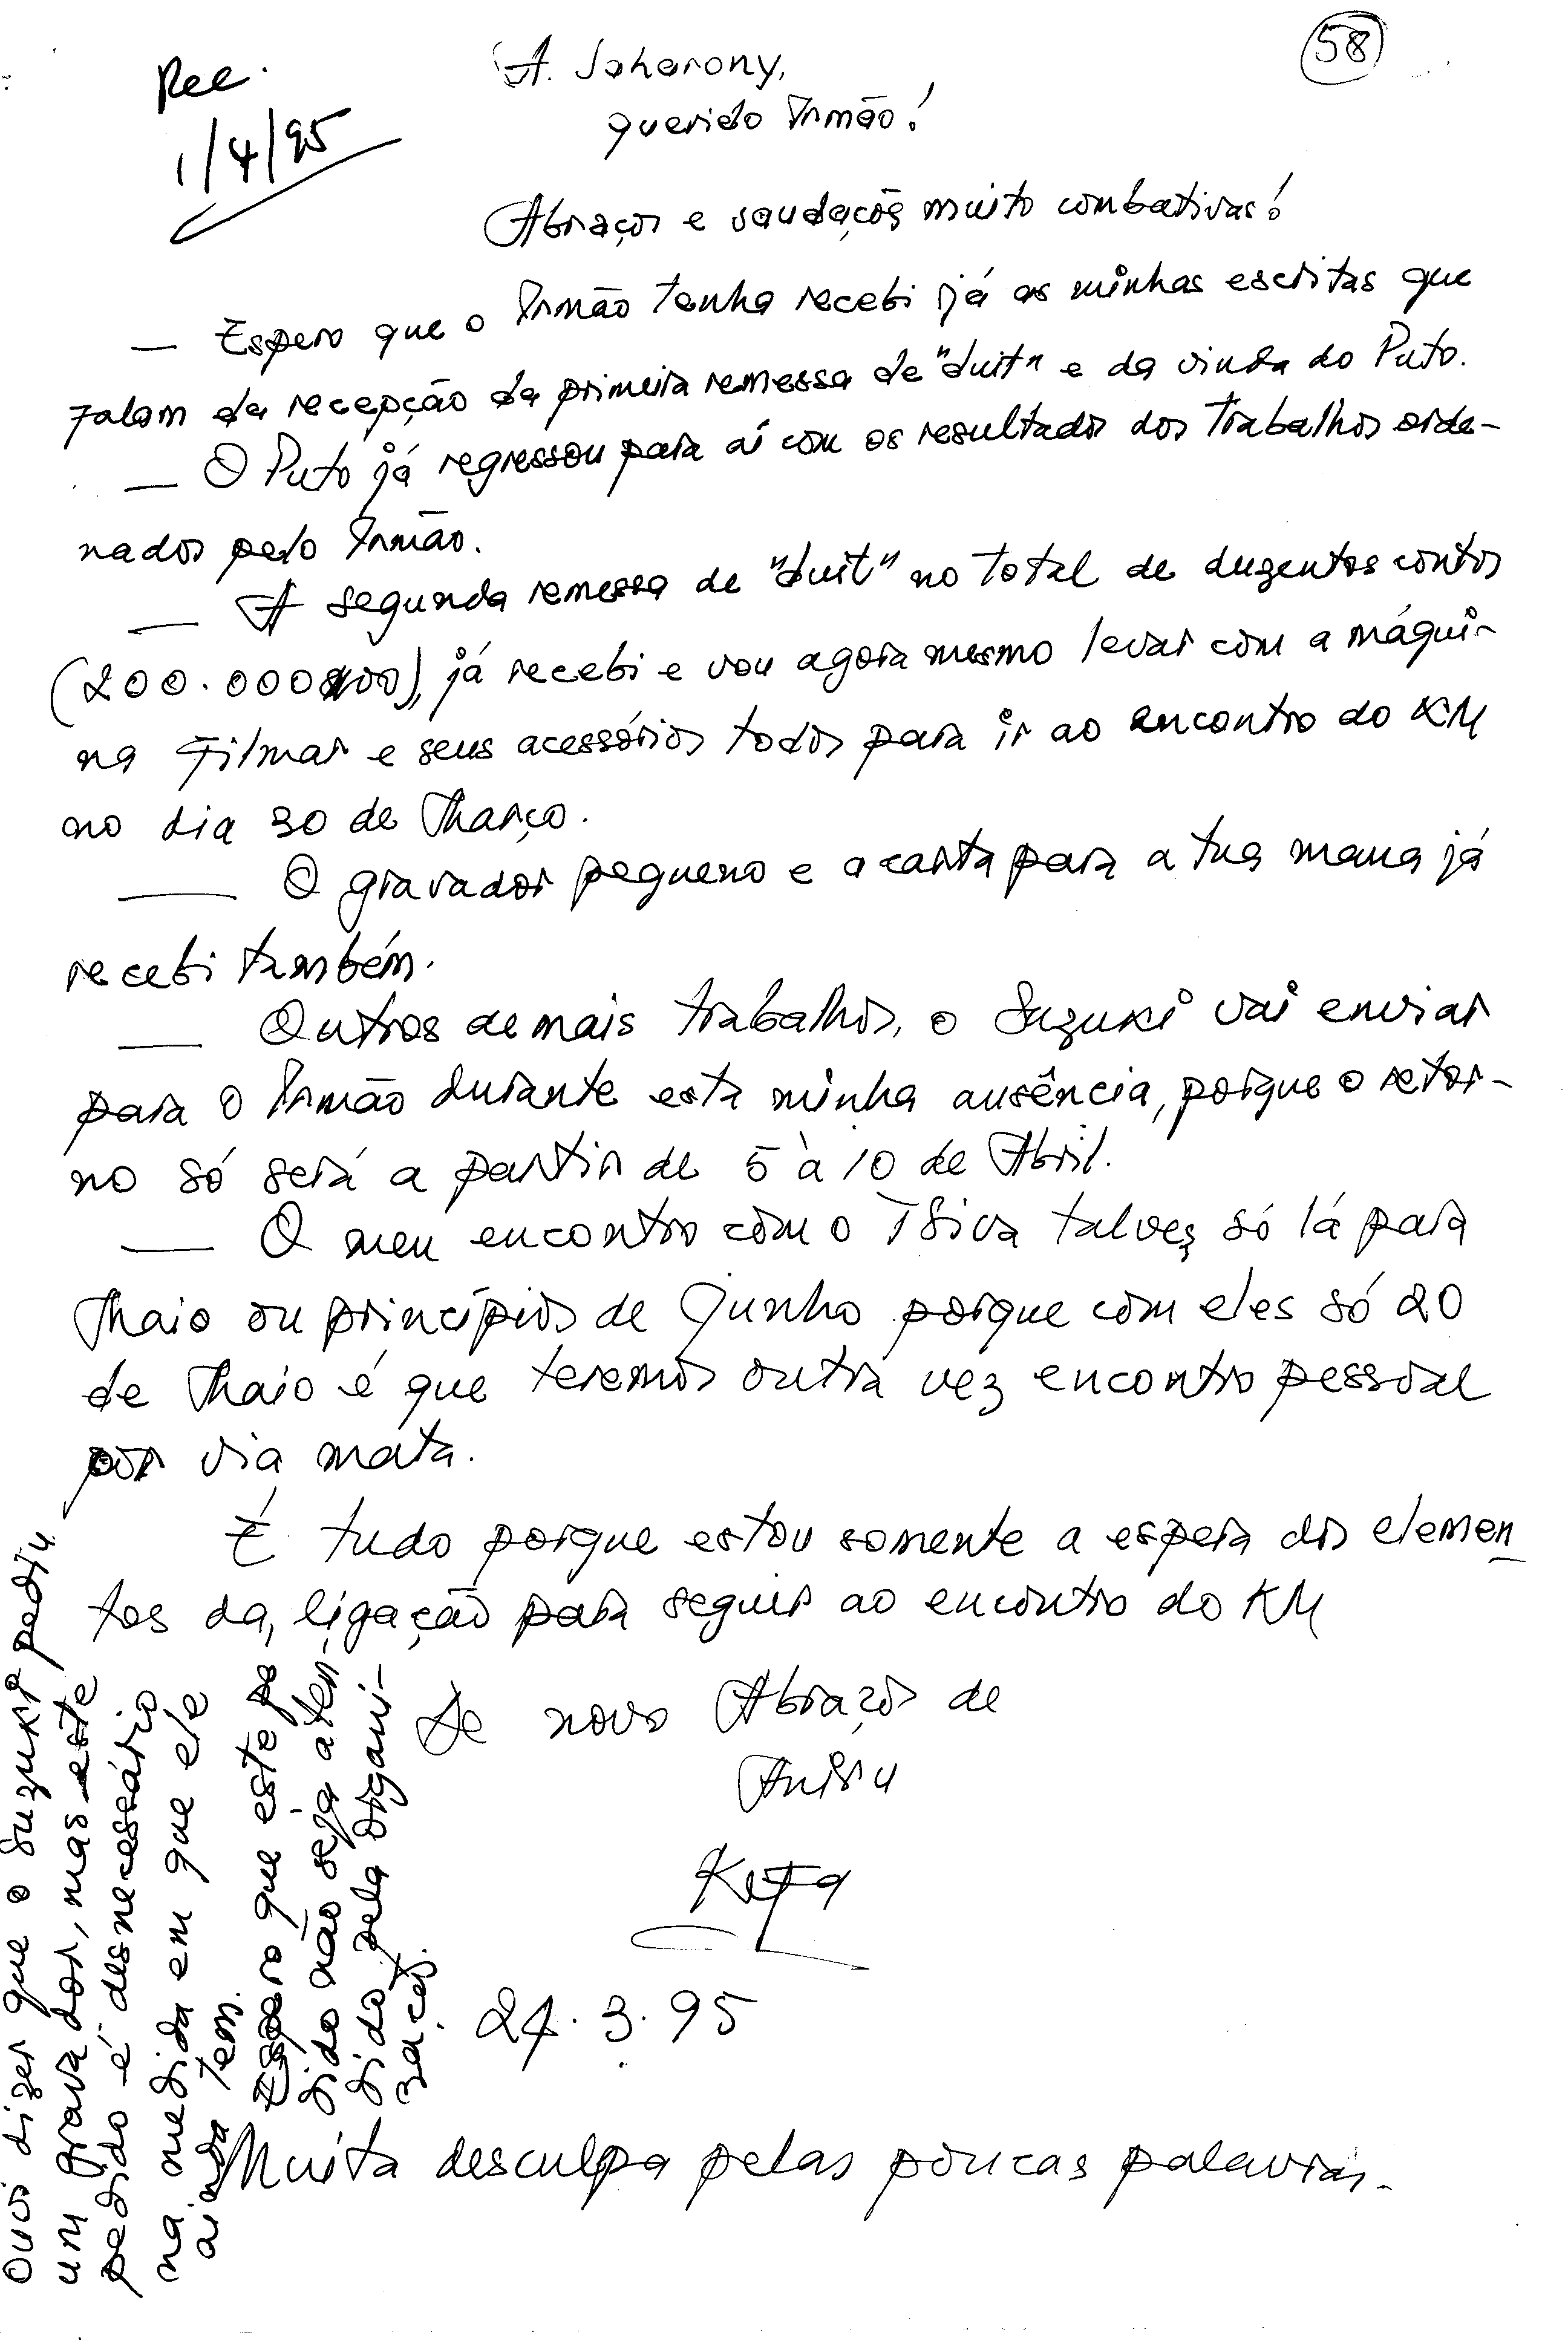 58
Rec.
1/4/95
A. Saharony,
querido Irmão!
Abraços e saudações muito combativas!
— Espero que o Irmão tenha recebi já as minhas escritas que
falam da recepção da primeira remessa de "duit" e da vinda do Puto.
— O Puto já regressou para aí com os resultados dos trabalhos orde-
nados pelo Irmão.
— A segunda remessa de "duit" no total de duzentos contos
(200.000$00), já recebi e vou agora mesmo levar com a máqui-
na Filmar e seus acessórios todos para ir ao encontro do KM
no dia 30 de Março.
— O gravador pequeno e a carta para a tua mana já
recebi também.
— Outros demais trabalhos, o Suzuki vai enviar
para o Irmão durante esta minha ausência, porque o retor-
no só será a partir de 5 à 10 de Abril.
— O meu encontro com o Tsiva talvez só lá para
Maio ou princípios de Junho porque com eles só 20
de Maio é que teremos outra vez encontro pessoal
por via mata.
É tudo porque estou somente a espera dos elemen-
tos da, ligação para seguir ao encontro do KM
de novo Abraços de
Keta
24.3.95
Muita desculpa pelas poucas palavras.
Ouvi dizer que o Suzuki pediu
um gravador, mas este
pedido é desnecessário
na medida em que ele
ainda tem.
Espero que este pe
dido não seja aten
dido pela organi-